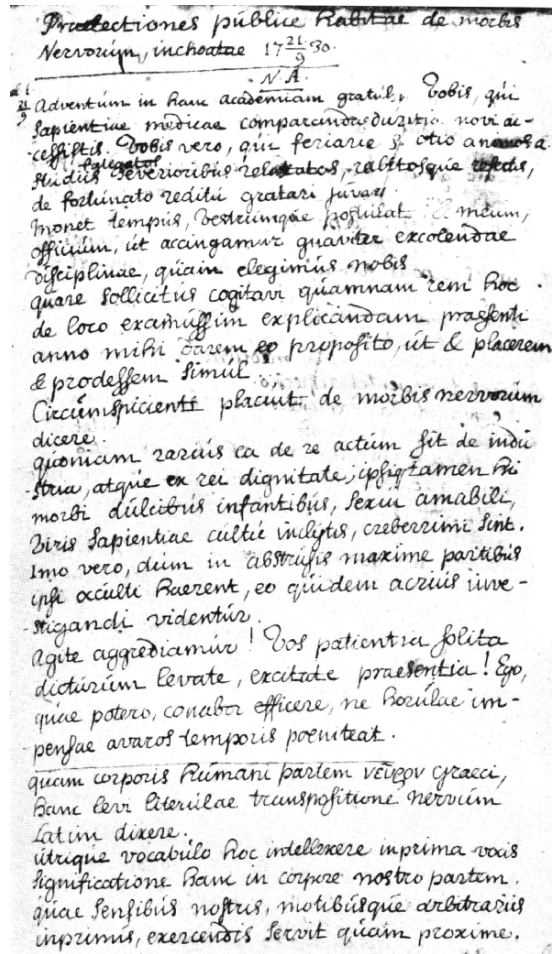 Praelectiones publice habitae de morbis
Nervorum, inchoatae 17 21/9 30.
N. A.
21/9 Adventum in hanc academiam gratul. Vobis, qui
Sapientiae medicae comparandae novi ac-
cessistis. Vobis vero, qui feriarum otio
fatigatos
studiis severioribus relaxatos,
de fortunato reditu gratari juvat.
monet tempus, vestrumque postulat & meum,
officium, ut accingamur gnaviter excolendae
disciplinae, quam elegimus nobis.
quare sollicitus cogitavi quamnam rem hoc
de loco examussim explicandam praesenti
anno mihi darem eo proposito, ut & placerem
& prodessem simul.
Circumspicienti placuit de morbis nervorum
dicere.
quoniam rarius ea de re actum sit de indu
-stria, atque ex rei dignitate; ipsiq; tamen hi
morbi dulcibus infantibus, sexui amabili,
Viris Sapientiae cultu inclytis, creberrimi sint.
Imo vero, dum in abstrusis maxime partibus
ipsi occulti haerent, eo quidem acrius inve-
-stigandi videntur.
Agite aggrediamur! Vos patientia solita
dicturum levate, excitate praesentia! Ego,
quae potero, conabor efficere, ne horulae im-
-pensae avaros temporis poeniteat.
quam corporis humani partem νεῦρον Graeci,
hanc levi literulae transpositione nervum
Latini dixere.
utrique vocabulo hoc intellexere inprima vocis
significatione hanc in corpore nostro partem.
quae sensibus nostris, motibusque arbitrariis
inprimis, exercendis servit quam proxime.